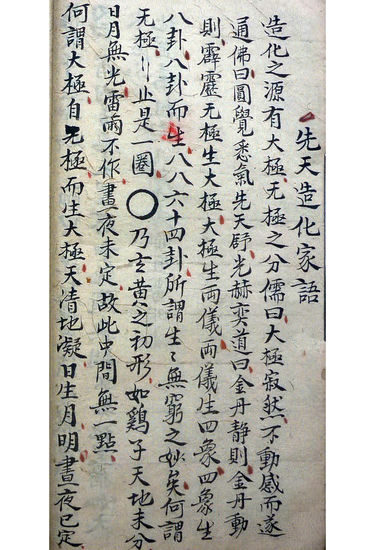 先天造化家語
造化之源有大極无極之分儒曰大極寂然不動感而遂
通佛曰圓覺悉氣先天舒光赫奕道曰金丹靜則金丹動
則霹靂无極生大極大極生両儀両儀生四象四象生
八卦八卦而生八八六十四卦所謂生〻無窮之妙矣何謂
无極〻止是一圈〇乃玄黄之初形如鷄子天地未分
日月無光雷雨不作晝夜未定故此中間無一點
何謂大極自无極而生大極天清地凝日生月明晝夜已定